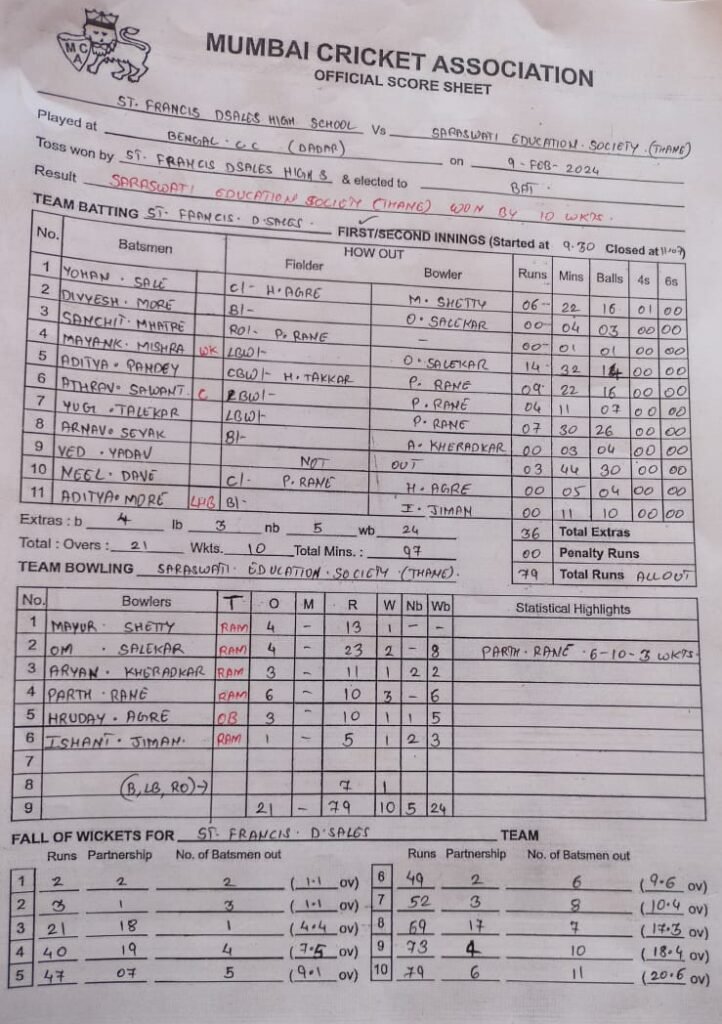 MCA
MUMBAI CRICKET ASSOCIATION
OFFICIAL SCORE SHEET
ST. FRANCIS DSALES HIGH SCHOOL Vs SARASWATI EDUCATION. SOCIETY. (THANE)
Played at BENGAL. C C (DADAR) on 9-FEB-2024
Toss won by ST. FRANCIS DSALES HIGH S & elected to BAT.
Result SARASWATI EDUCATION SOCIETY (THANE) WON BY 10 WKTS.
TEAM BATTING ST. FRANCIS. D.SALES. FIRST/SECOND INNINGS (Started at 9.30 Closed at 11.07)
No. Batsmen HOW OUT Runs Mins Balls 4s 6s
Fielder Bowler
1 YOHAN. SALE C/- H. AGRE M. SHETTY 06 22 16 01 00
2 DIVYESH. MORE B/- O. SALEKAR 00 04 03 00 00
3 SANCHIT. MHATRE RO/- P. RANE - 00 01 01 00 00
4 MAYANK. MISHRA WK LBW/- O. SALEKAR 14 32 14 00 00
5 ADITYA. PANDEY CBW/- H. TAKKAR P. RANE 09 22 16 00 00
6 ATHRAV. SAWANT. C LBW/- P. RANE 04 11 07 00 00
7 YUGI. TALEKAR LBW/- P. RANE 07 30 26 00 00
8 ARNAV. SEVAK B/- A. KHERADKAR 00 03 04 00 00
9 VED. YADAV NOT OUT 03 44 30 00 00
10 NEEL. DAVE C/. P. RANE H. AGRE 00 05 04 00 00
11 ADITYA. MORE LHB B/- I. JIMAN 00 11 10 00 00
Extras : b 4 lb 3 nb 5 wb 24 36 Total Extras
Total : Overs : 21 Wkts. 10 Total Mins. : 97 00 Penalty Runs
TEAM BOWLING SARASWATI. EDUCATION. SOCIETY. (THANE). 79 Total Runs ALLOUT
No. Bowlers T O M R W Nb Wb Statistical Highlights
1 MAYUR. SHETTY RAM 4 - 13 1 - -
2 OM. SALEKAR RAM 4 - 23 2 - 8 PARTH. RANE. 6-10-3 WKTS.
3 ARYAN. KHERADKAR RAM 3 - 11 1 2 2
4 PARTH. RANE RAM 6 - 10 3 - 6
5 HRUDAY. AGRE OB 3 - 10 1 1 5
6 ISHANT. JIMAN. RAM 1 - 5 1 2 3
7
8 (B, LB, RO)→ 7 1
9 21 - 79 10 5 24
FALL OF WICKETS FOR ST. FRANCIS. D'SALES TEAM
Runs Partnership No. of Batsmen out Runs Partnership No. of Batsmen out
1 2 2 2 (1.1 ov) 6 49 2 6 (9.6 ov)
2 3 1 3 (1.1 ov) 7 52 3 8 (10.4 ov)
3 21 18 1 (4.4 ov) 8 69 17 7 (17.3 ov)
4 40 19 4 (7.5 ov) 9 73 4 10 (18.4 ov)
5 47 07 5 (9.1 ov) 10 79 6 11 (20.6 ov)